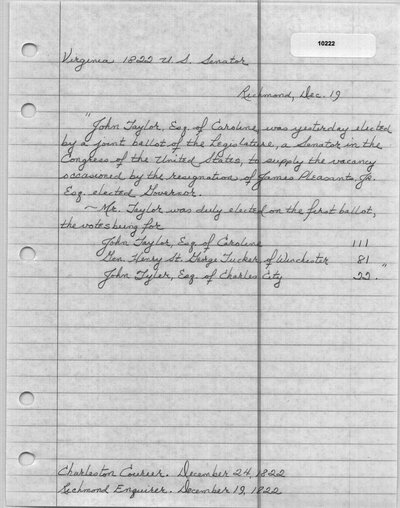 10222
Virginia 1822 U.S. Senator
Richmond, Dec. 19
"John Taylor, Esq. of Caroline, was yesterday elected
by a joint ballot of the Legislature, a Senator in the
Congress of the United States, to supply the vacancy
occasioned by the resignation of James Pleasants, Jr.
Esq. elected Governor.
~Mr. Taylor was duly elected on the first ballot,
the votes being for
John Taylor, Esq. of Caroline 111
Gen. Henry St. George Tucker of Winchester 81
John Tyler, Esq. of Charles City 22."
Charleston Courier. December 24, 1822
Richmond Enquirer. December 19, 1822